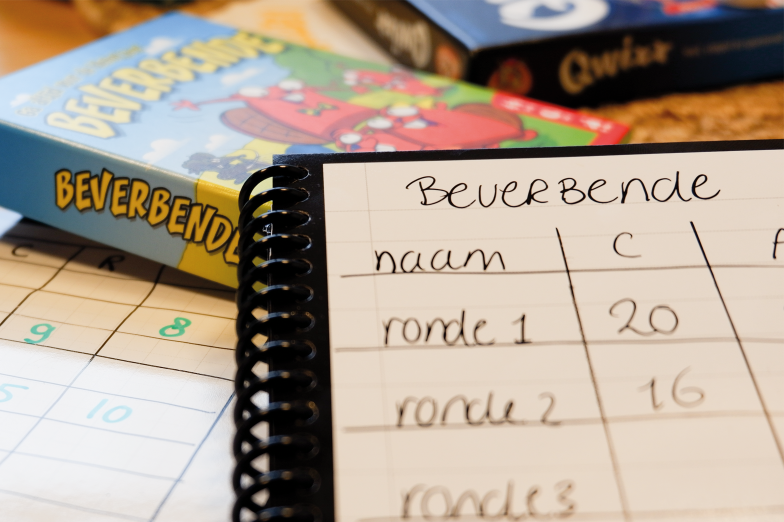 BEVERBENDE
BEVERBENDE
Qwixx
C R
9 8
5 10
BeverBende
naam C
ronde 1 20
ronde 2 16
ronde 3